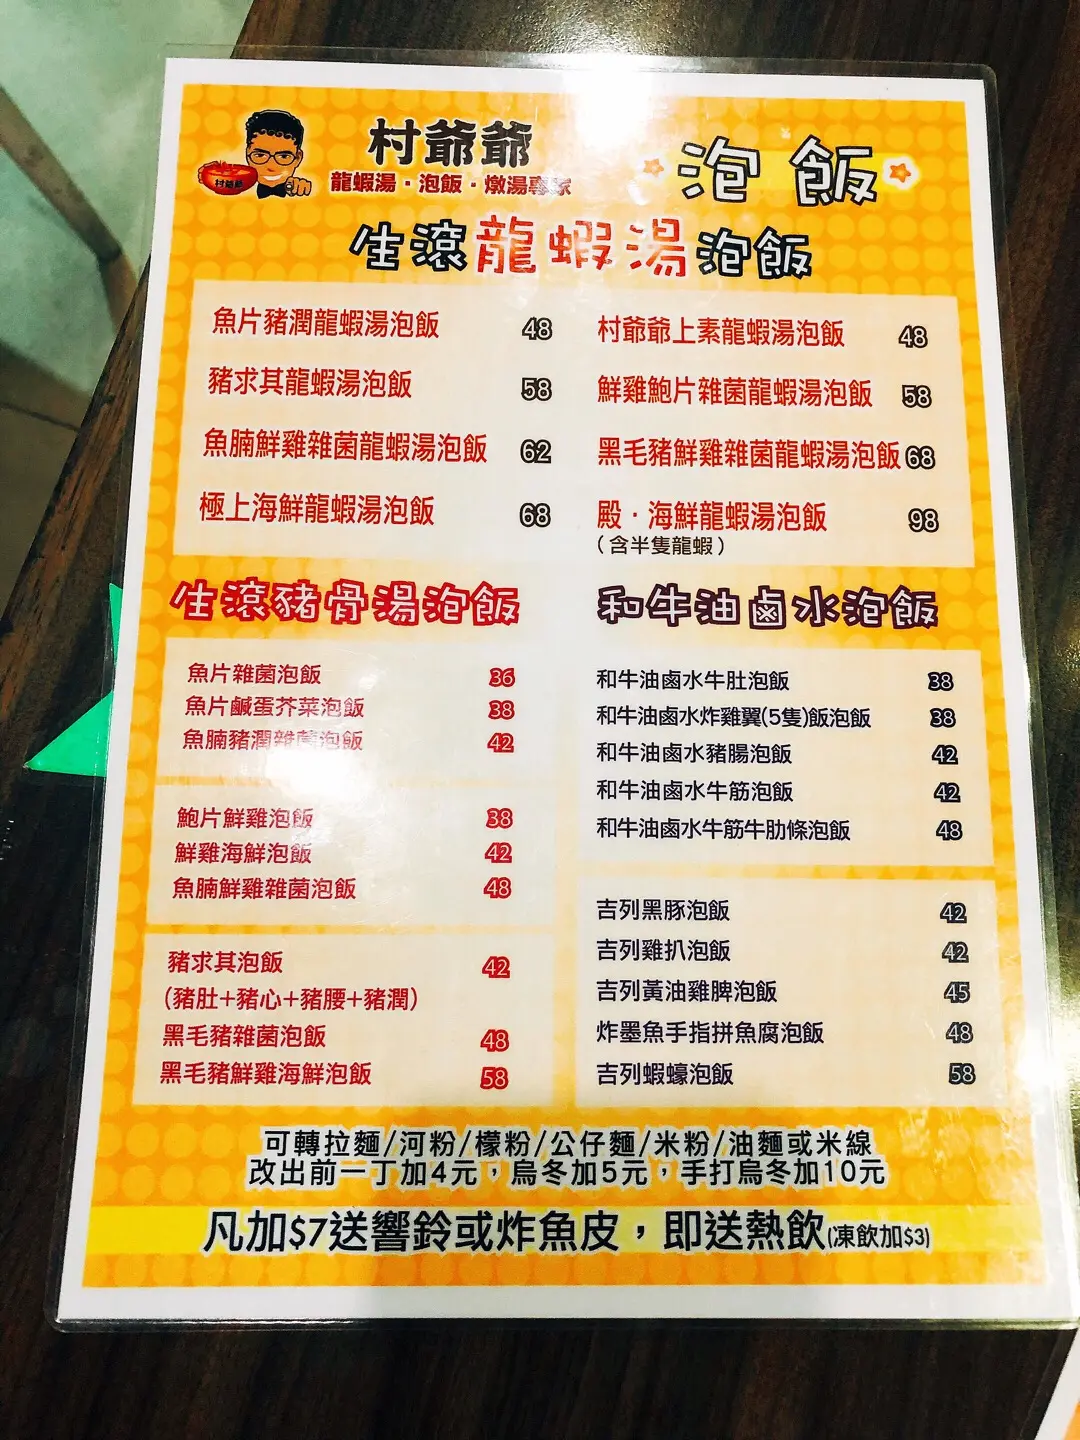 村爺爺
龍蝦湯·泡飯·燉湯專家
村爺爺
泡飯
生滾龍蝦湯泡飯
魚片豬潤龍蝦湯泡飯 48
豬求其龍蝦湯泡飯 58
魚腩鮮雞雜菌龍蝦湯泡飯 62
極上海鮮龍蝦湯泡飯 68
村爺爺上素龍蝦湯泡飯 48
鮮雞鮑片雜菌龍蝦湯泡飯 58
黑毛豬鮮雞雜菌龍蝦湯泡飯 68
殿·海鮮龍蝦湯泡飯 98
（含半隻龍蝦）
生滾豬骨湯泡飯
魚片雜菌泡飯 36
魚片鹹蛋芥菜泡飯 38
魚腩豬潤雜菌泡飯 42
鮑片鮮雞泡飯 38
鮮雞海鮮泡飯 42
魚腩鮮雞雜菌泡飯 48
豬求其泡飯 42
（豬肚+豬心+豬腰+豬潤）
黑毛豬雜菌泡飯 48
黑毛豬鮮雞海鮮泡飯 58
和牛油鹵水泡飯
和牛油鹵水牛肚泡飯 38
和牛油鹵水炸雞翼(5隻)飯泡飯 38
和牛油鹵水豬腸泡飯 42
和牛油鹵水牛筋泡飯 42
和牛油鹵水牛筋牛肋條泡飯 48
吉列黑豚泡飯 42
吉列雞扒泡飯 42
吉列黃油雞脾泡飯 45
炸墨魚手指拼魚腐泡飯 48
吉列蝦蠔泡飯 58
可轉拉麵/河粉/檬粉/公仔麵/米粉/油麵或米線
改出前一丁加4元，烏冬加5元，手打烏冬加10元
凡加$7送響鈴或炸魚皮，即送熱飲(凍飲加$3)